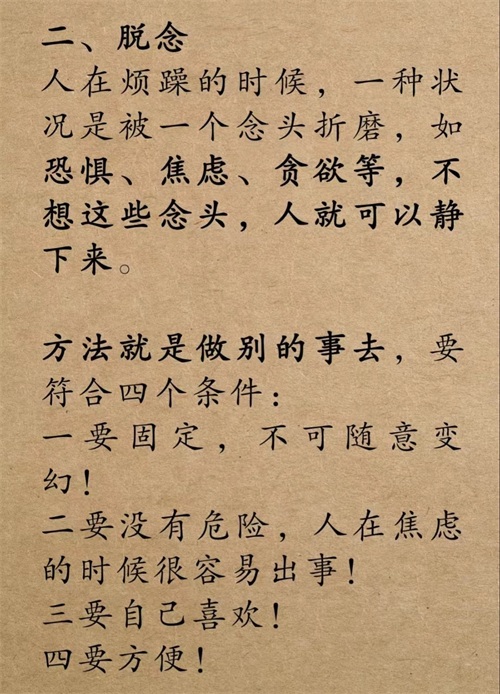 二、脱念
人在烦躁的时候，一种状
况是被一个念头折磨，如
恐惧、焦虑、贪欲等，不
想这些念头，人就可以静
下来。
方法就是做别的事去，要
符合四个条件：
一要固定，不可随意变
幻！
二要没有危险，人在焦虑
的时候很容易出事！
三要自己喜欢！
四要方便！